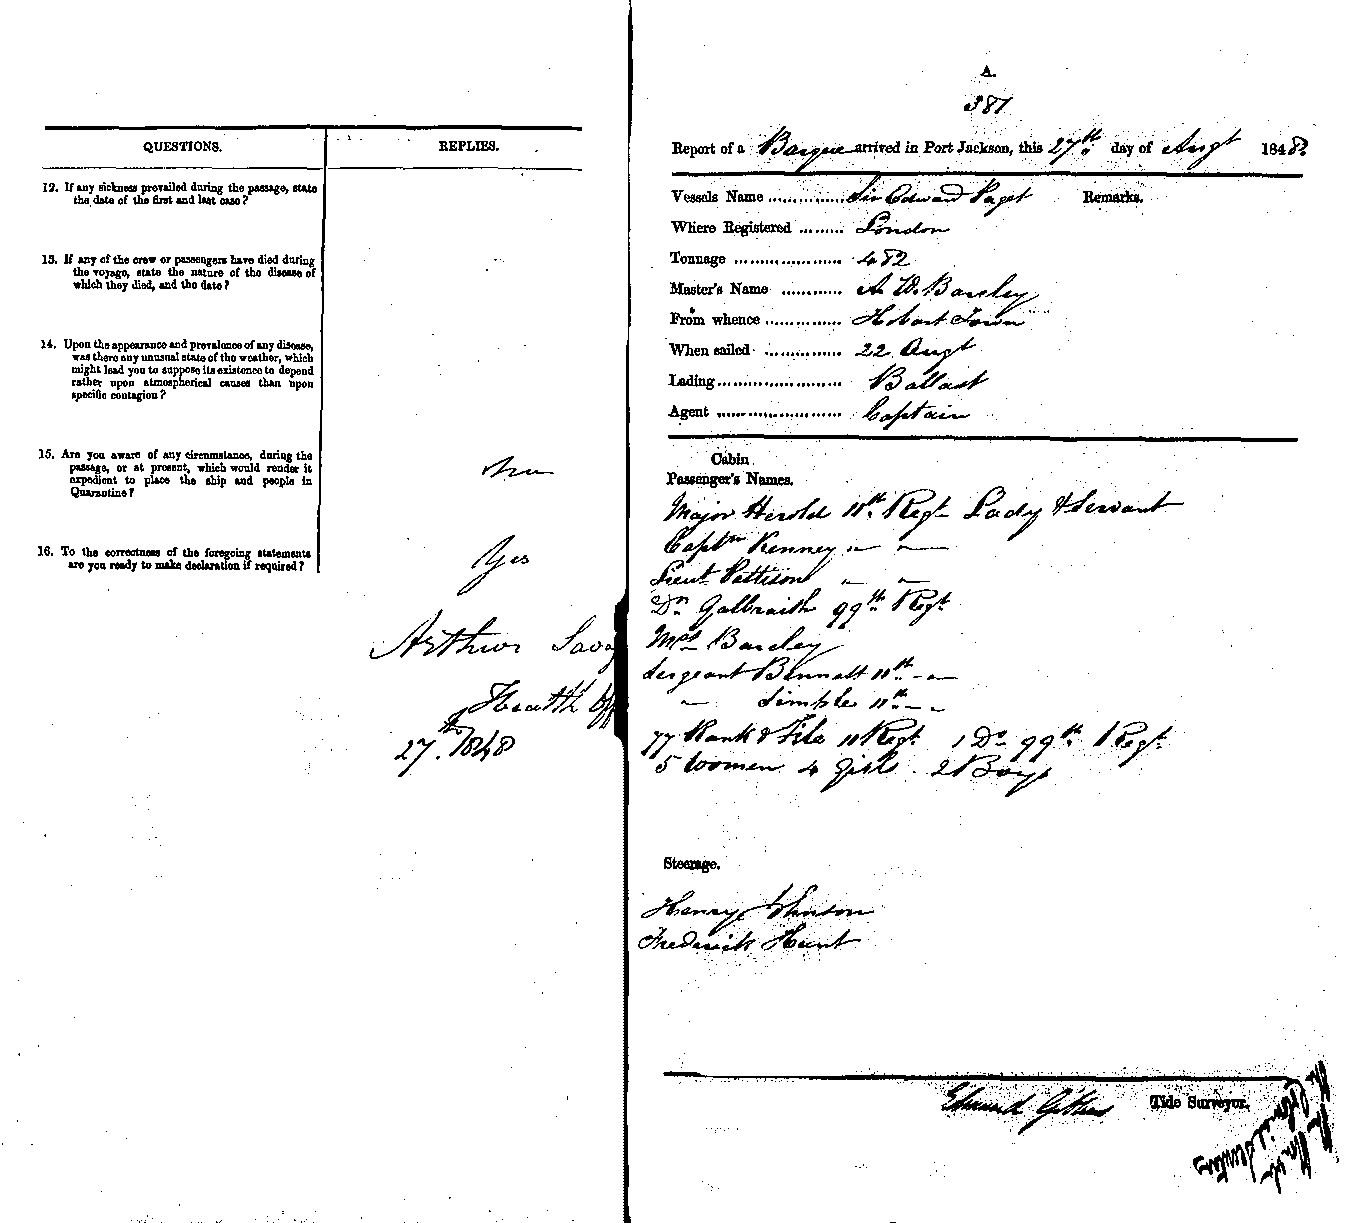 QUESTIONS. REPLIES.
12. If any sickness prevailed during the passage, state
the date of the first and last case?
13. If any of the crew or passengers have died during
the voyage, state the nature of the disease of
which they died, and the date?
14. Upon the appearance and prevalence of any disease,
was there any unusual state of the weather, which
might lead you to suppose its existence to depend
rather upon atmospherical causes than upon
specific contagion?
15. Are you aware of any circumstance, during the
passage, or at present, which would render it
expedient to place the ship and people in
Quarantine?
16. To the correctness of the foregoing statements
are you ready to make declaration if required?
Yes
Arthur Sava
Health Off
27th 1848
A.
381
Report of a Barque arrived in Port Jackson, this 27th day of Augt 1848
Vessels Name Sir Edward Paget Remarks.
Where Registered London
Tonnage 482
Master's Name A. W. Barclay
From whence Hobart Town
When sailed 22 Augt
Lading Ballast
Agent Captain
Cabin
Passenger's Names.
Major Herold 11th Regt Lady & Servant
Captn Kenney " "
Lieut Pattison " "
Dr Galbraith 99th Regt
Mrs Barclay
Sergeant Bennett 11th "
" Simple 11th "
77 Rank & File 11 Regt 1 Do 99th Regt
5 Women 4 girls 2 Boys
Steerage.
Henry Johnson
Frederick Hunt
Edward Tide Surveyor.